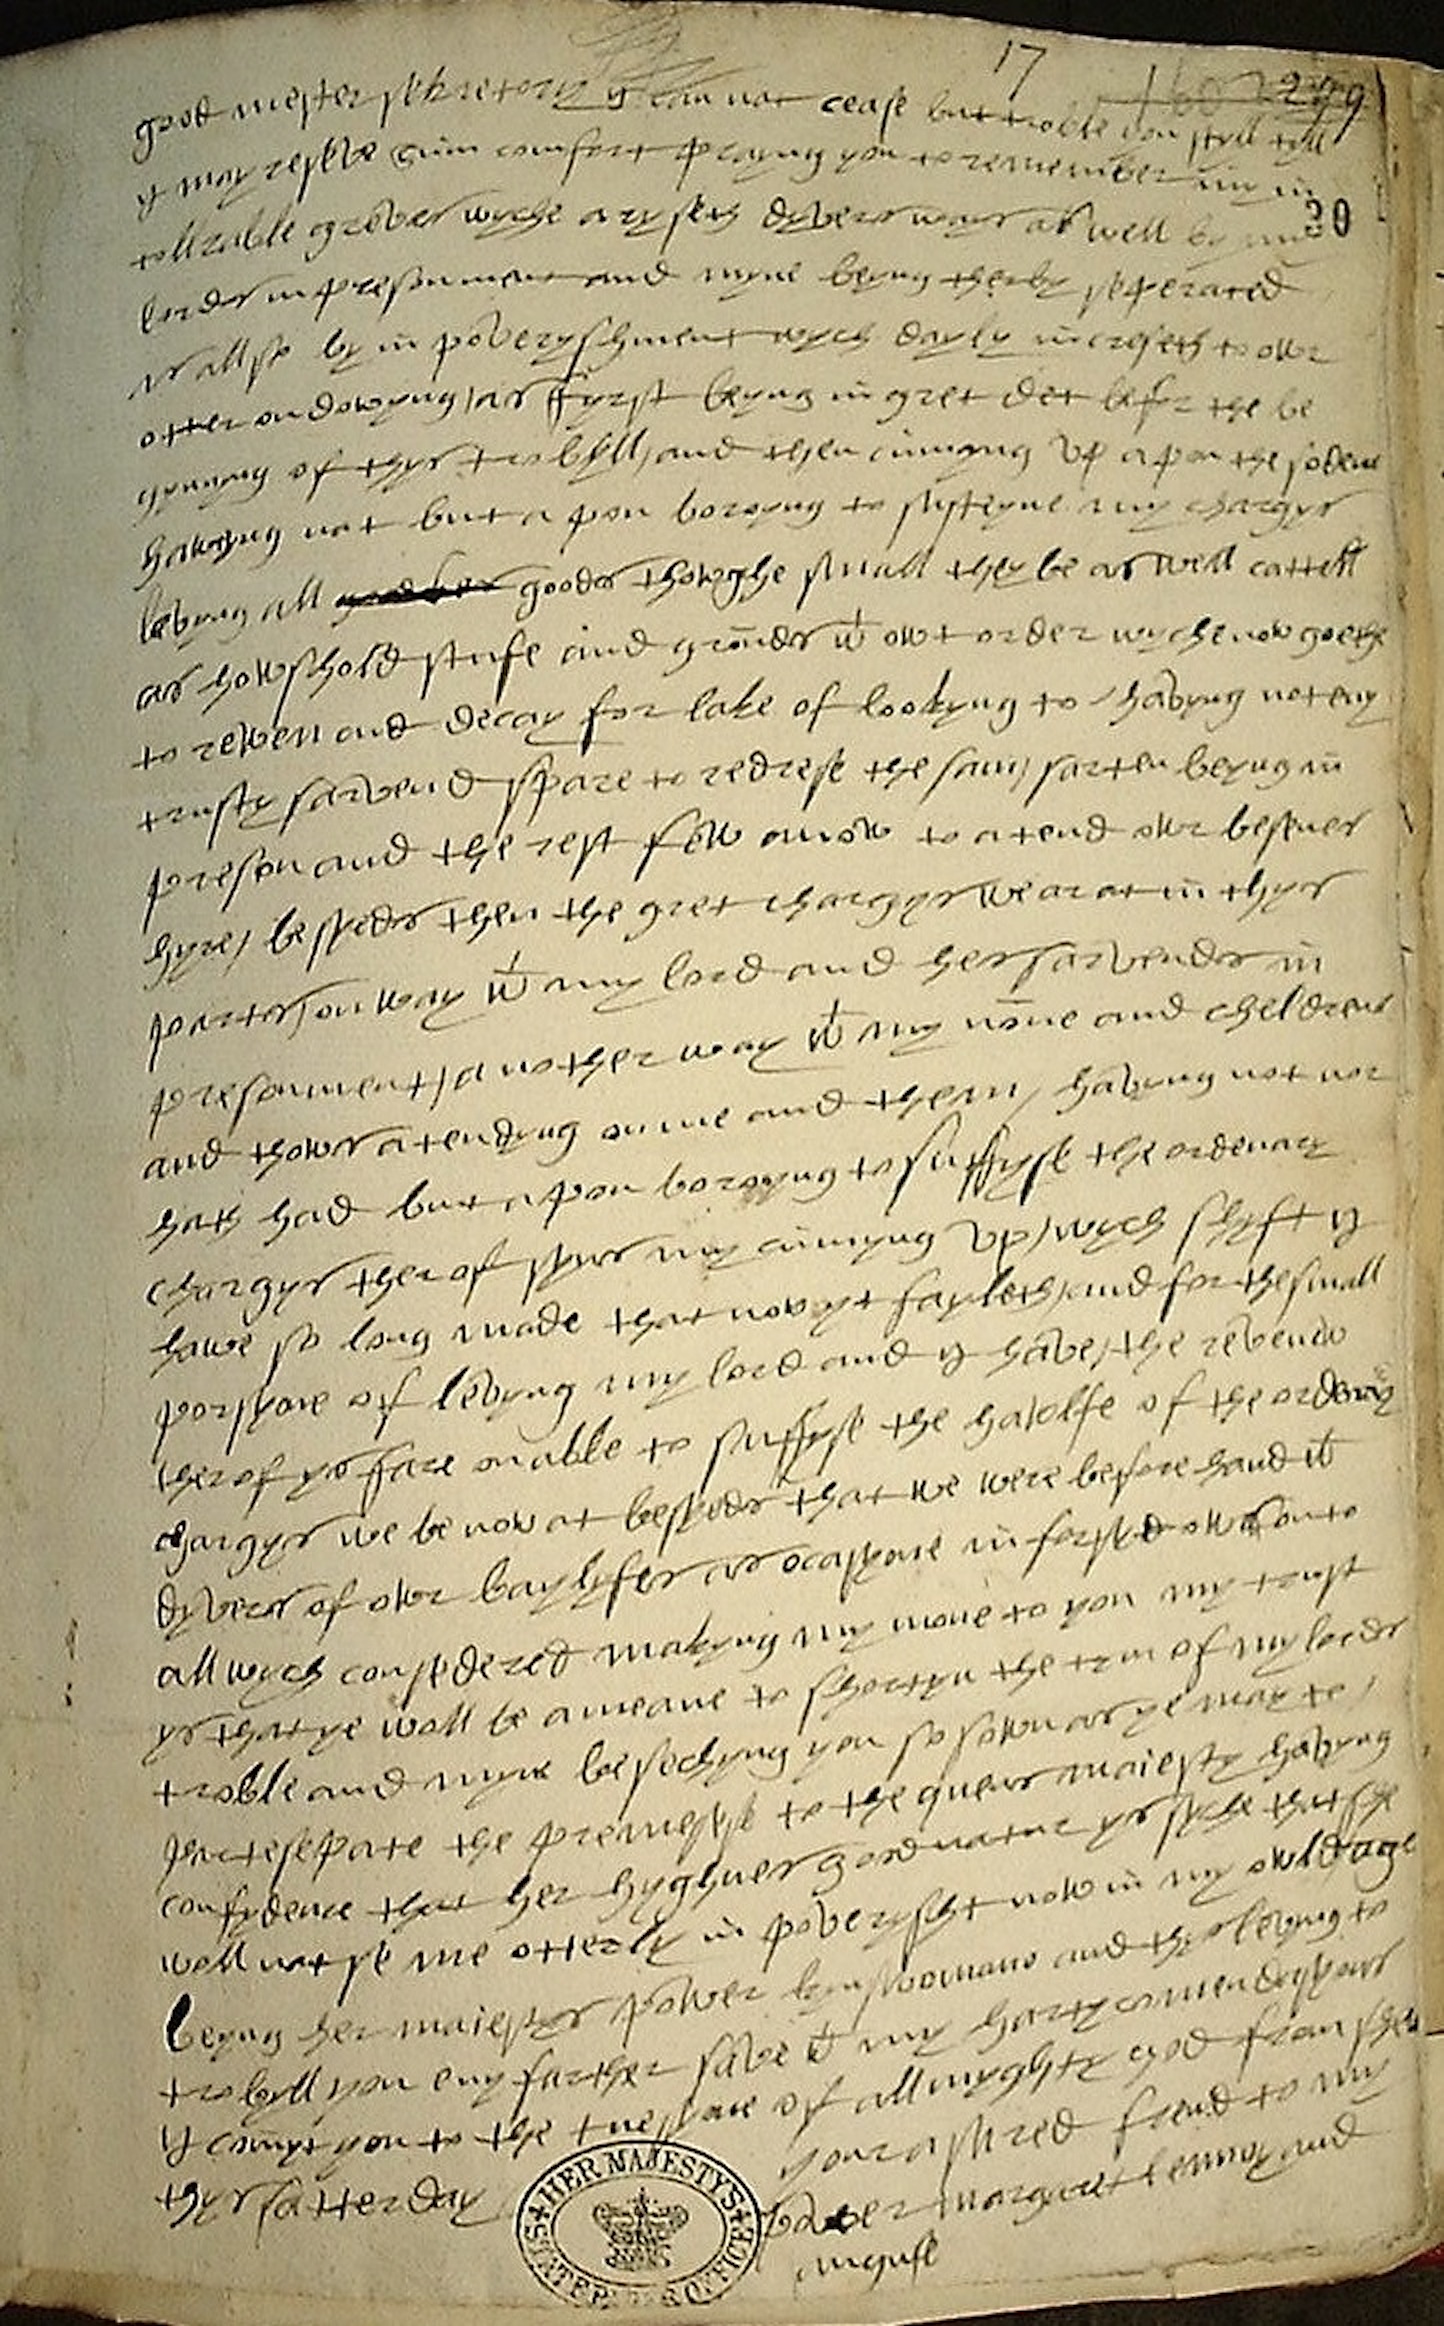 17
279
30
good mester sekretory y can not cease but troble you styll tyll
y may reseve sum comfort prayng you to remember my in
tollrable greves wyche aryseth dyvers ways as well by my
lordes inpresonment and myne beyng therby seperated
as allso by in poveryschment wych dayly incryseth to owr
otter ondowyng as ffyrst beyng in gret det befor the be
gynnyng of thys trobyll and then cumyng up apon the soden
hawyng not but apon boroyng to susteyne my chargys
levyng all goodes thowghe small they be as well cattell
as howshold stufe and grounds wt owt order wyche now goethe
to rewen and decay for lake of lookyng to havyng not eny
trusty sarvend spare to redresse the sam sarten beyng in
preson and the rest few anow to atend owr besenes
hyre besydes then the gret chargys we ar at in thys
partes on way wt my lord and hes sarvendes in
presonment a nother way wt my none and cheldrens
and thows atendyng on me and them havyng not nor
hath had but apon boroyng to suffyse the ordenary
chargys therof syns my cumyng up wych shyft y
hawe so long made that now yt fayleth and for the small
porsyone of levyng my lord and y have the revenew
therof ys ffare onable to suffyse the hawlfe of the ordenary
chargys we be now at besydes that we were before hand wt
dyvers of owr baylyfes as ocasyone inforsed ows onto
all wych consedered makyng my mone to you my trust
ys that ye woll be a meane to shortyn the tym of my lordes
troble and myne besechyng you so sown as ye may to
partesepate the premesses to the quens maiesty havyng
confydence that her hyghnes good natur ys syche that she
woll not se me otterly in poverysht now in my owld age
beyng her maiestys power kynswomane and thus levyng to
trobyll you eny farther save wt my harty comendasyons
y comyt you to the tuesyone of allmyghty god from shen
thys satterday
your asured frend to my
power margaret lennox and
anguse
HER MAJESTYS STATE PAPER OFFICE